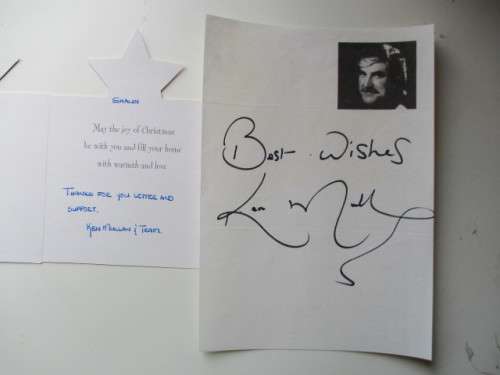 SHAUN
May the joy of Christmas
be with you and fill your home
with warmth and love
THANKS FOR YOU LETTER AND
SUPPORT.
KEN M
Best Wishes
Ken M